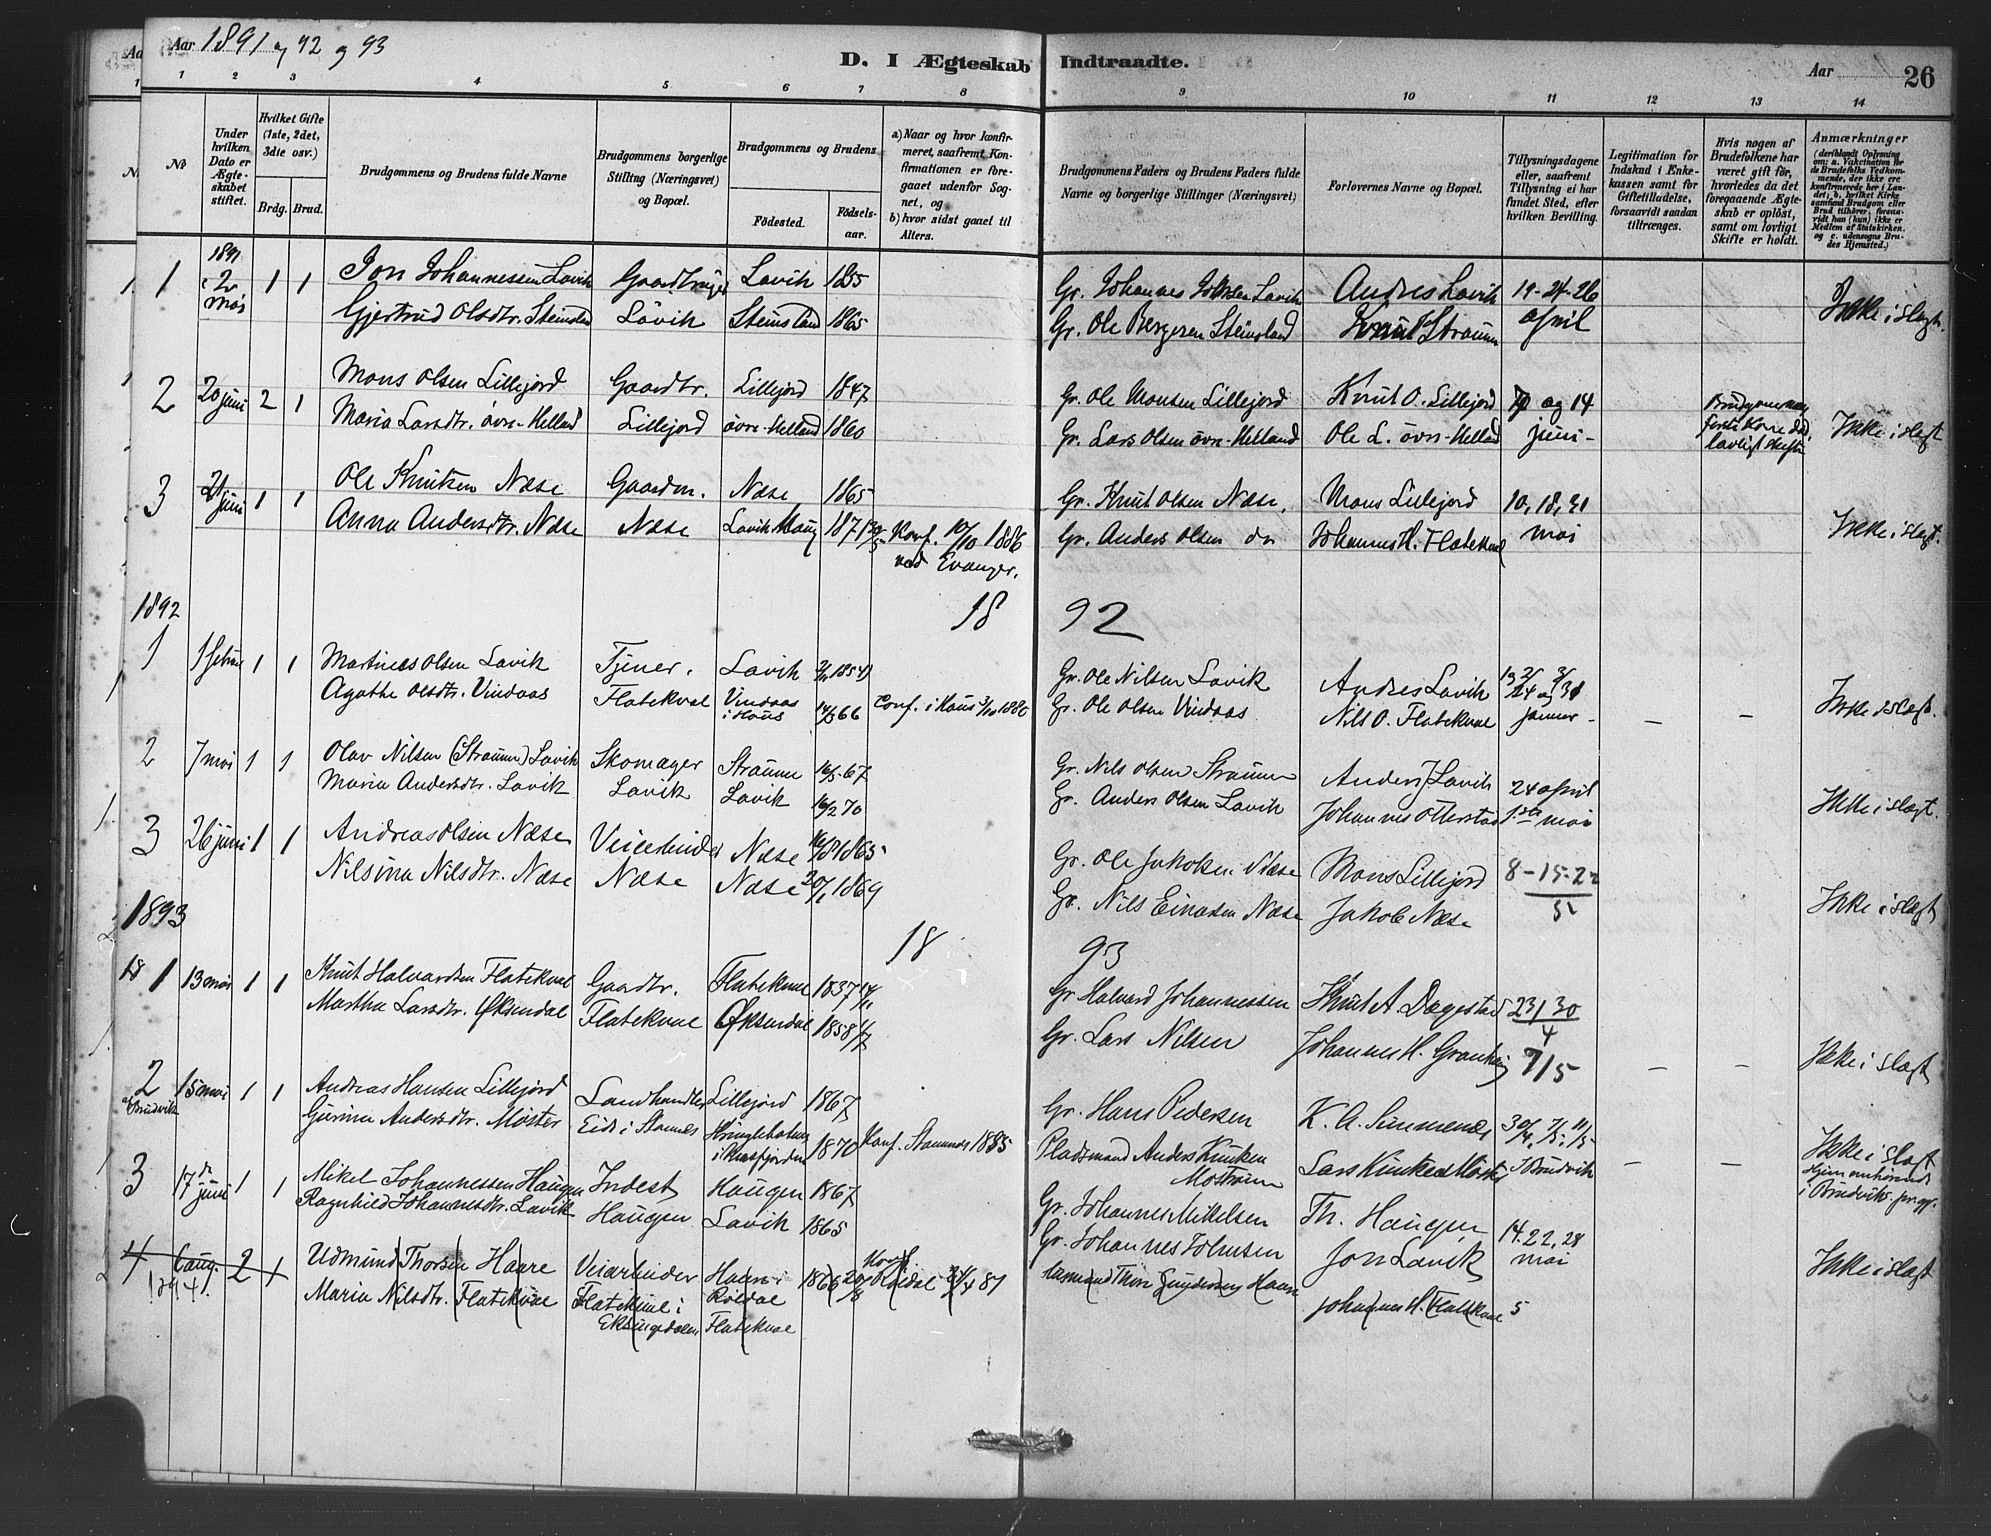 Aar 1891 og 92 og 93
D. I Ægteskab Indtraadte.
Aar 26
1 2 3 4 5 6 7 8 9 10 11 12 13 14
No
Under hvilken Dato er Ægteskabet stiftet.
Hvilket Gifte (1ste, 2det, 3die osv.)
Brdg. Brud.
Brudgommens og Brudens fulde Navne
Brudgommens borgerlige Stilling (Næringsvei) og Bopæl.
Brudgommens og Brudens
Fødested. Fødselsaar.
a) Naar og hvor konfirmeret, saafremt Konfirmationen er foregaaet udenfor Sognet, og
b) hvor sidst gaaet til Alters.
Brudgommens Faders og Brudens Faders fulde Navne og borgerlige Stillinger (Næringsvei)
Forlovernes Navne og Bopæl.
Tillysningsdagene eller, saafremt Tillysning ei har fundet Sted, efter hvilken Bevilling.
Legitimation for Indskud i Enkekassen samt for Giftetilladelse, forsaavidt saadan tiltrænges.
Hvis nogen af Brudefolkene har været gift før, hvorledes da det foregaaende Ægteskab er opløst, samt om lovligt Skifte er holdt.
Anmærkninger
(deriblandt Oplysning om: a. Vakcination for de Brudefolks Vedkommende, der ikke ere konfirmerede her i Landet; b. hvilket Kirkesamfund Brudgom eller Brud tilhører, forsaavidt han (hun) ikke er Medlem af Statskirken, og c. udensogns Brudes Hjemsted.)
1891
1 2 Mai 1 1 Jon Johannessen Lavik Gaardbruger Lavik 1855 Gr. Johannes Lavik Andres Lavik 19-24-26
Gjertrud Olsdtr. Steinsland Lavik Steinsland 1865 Gr. Ole Bergesen Steinsland Knut Straum april Ikke i slægt.
2 20 juni 2 1 Mons Olsen Lillejord Gaardbr. Lillejord 1847 Gr. Ole Monsen Lillejord Knut O. Lillejord og 14 Brudgommens
Maria Larsdtr. øvre-Helland Lillejord øvre-Helland 1860 Gr. Lars Olsen øvre-Helland Ole L. øvre-Helland juni - første Kone død, lovligt skifte Ikke i slægt
3 21 juni 1 1 Ole Knutsen Næse Gaardm. Næse 1865 Gr. Knut Olsen Næse, Mons Lillejord 10, 18, 31
Anna Andersdtr. Næse Næse Lavik Haug 1871 Konf. 10/10 1886 Gr. Anders Olsen do Johannes H. Flatekval mai Ikke i slægt.
ved Evanger.
1892 18 92
1 1 1 1 Martines Olsen Lavik Tjener, Lavik 1854 Gr. Ole Nilsen Lavik Andres Lavik 24 og 31
Agathe Olsdtr. Vindaas Flatekval Vindaas i Haus 14/3 66 Conf. i Haus 3/10 1880 Gr. Ole Olsen Vindaas Nils O. Flatekval januar - — — Ikke i slægt.
2 7 mai 1 1 Olav Nilsen (Straum) Lavik Skomager Straume 16/5 67 Gr. Nils Olsen Straum Anders J Lavik 24 april
Maria Andersdtr. Lavik Lavik Lavik 16/2 70 Gr. Anders Olsen Lavik Johannes Otterstad 1ste mai Ikke i slægt.
3 26 juni 1 1 Andreas Olsen Næse Veiarbeider Næse 1865 Gr. Ole Jakobsen Næse Mons Lillejord 8-15-22
Nilsina Nilsdtr. Næse Næse Næse 20/1 1869 Gr. Nils Einarsen Næse Jakob Næse 5 Ikke i slægt
1893 18 93
1 13 mai 1 1 Knut Halvardsen Flatekval Gaardbr. Flatekval 1837 14/11 Gr. Halvard Johannessen Knut A. Dagestad 23/30
Martha Larsdtr. Øksendal Flatekval Øksendal 1858 4/7 Gr. Lars Nilsen Johannes H. 4 7/5 — — Ikke i slægt
2 15 mai 1 1 Andreas Hansen Lillejord Landhandler Lillejord 1867 Gr. Hans Pedersen K. A. Simmenæs 30/4, 7/5, 11/5
af Brudvik Gurina Andersdtr. Moster Eide i Stamnes 1870 Konf. Stamnes 1885 Pladsmand Anders Knutsen Lars Knutsen i Brudvik — — Ikke i slægt
i Brudviks prgj.
3 17 de juni 1 1 Mikel Johannessen Haugen Inderst Haugen 1867 Gr. Johannes Mikelsen Th. Haugen 14. 22, 28
Ragnhild Johannesdtr. Lavik Haugen Lavik 1865 Gr. Johannes Johnsen Jon Lavik mai Ikke i slægt
4 6 aug. 2 1 Udmund Thorsen Haare Veiarbeider Haare i Røldal 1866 20/8 Konf. Røldal 87 Thore Gundersen Haare
1894. Maria Nilsdtr. Flatekval Flatekval i Eksingedalen Flatekval Johannes H. Flatekval 5